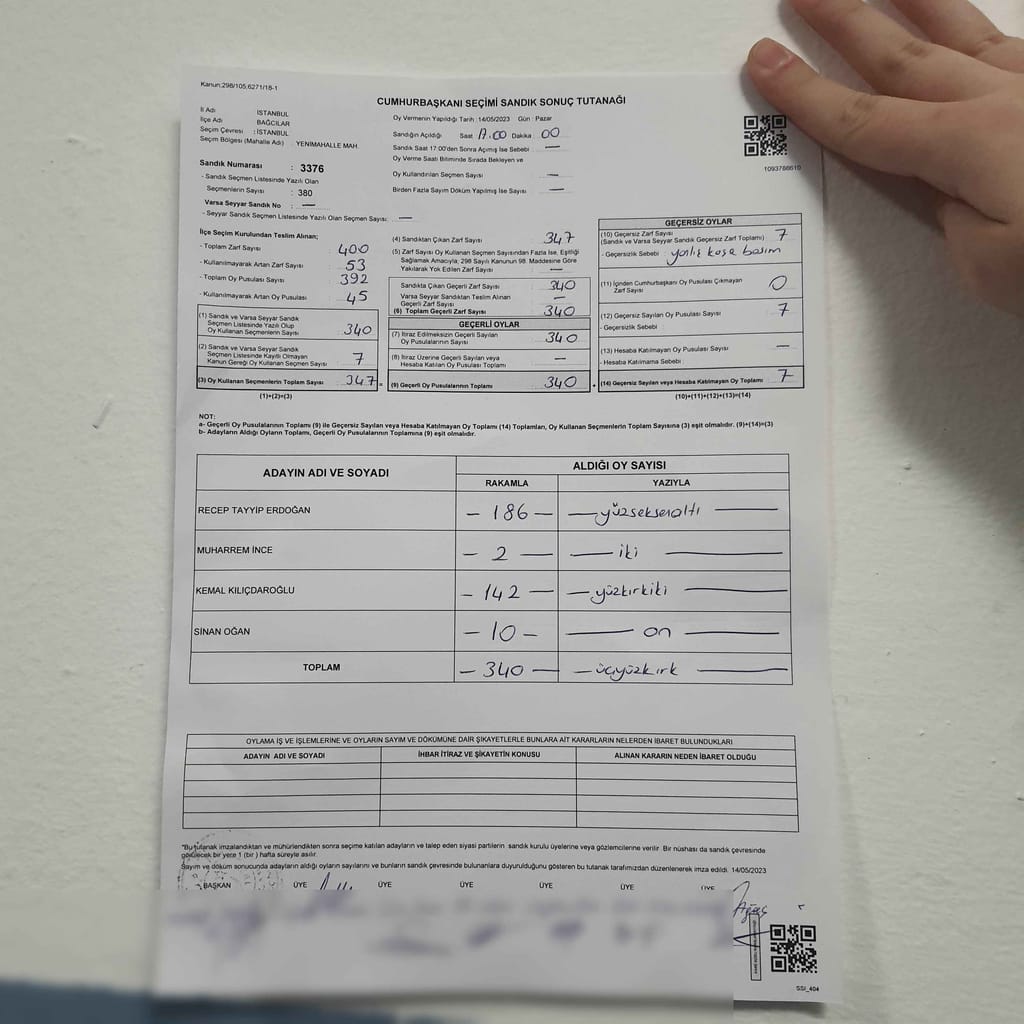 Kanun:298/105,6271/18-1
CUMHURBAŞKANI SEÇİMİ SANDIK SONUÇ TUTANAĞI
İl Adı : İSTANBUL
İlçe Adı BAĞCILAR
Seçim Çevresi : İSTANBUL
Seçim Bölgesi (Mahalle Adı) : YENİMAHALLE MAH.
Sandık Numarası : 3376
- Sandık Seçmen Listesinde Yazılı Olan
Seçmenlerin Sayısı : 380
Varsa Seyyar Sandık No : —
- Seyyar Sandık Seçmen Listesinde Yazılı Olan Seçmen Sayısı: —
Oy Vermenin Yapıldığı Tarih : 14/05/2023 Gün : Pazar
Sandığın Açıldığı Saat 17:00 Dakika : 00
Sandık Saat 17:00'den Sonra Açılmış İse Sebebi : —
Oy Verme Saati Bitiminde Sırada Bekleyen ve
Oy Kullandırılan Seçmen Sayısı : —
Birden Fazla Sayım Döküm Yapılmış İse Sayısı : —
1093786610
İlçe Seçim Kurulundan Teslim Alınan;
- Toplam Zarf Sayısı : 400
- Kullanılmayarak Artan Zarf Sayısı : 53
- Toplam Oy Pusulası Sayısı : 392
- Kullanılmayarak Artan Oy Pusulası : 45
(1) Sandık ve Varsa Seyyar Sandık
Seçmen Listesinde Yazılı Olup
Oy Kullanan Seçmenlerin Sayısı : 340
(2) Sandık ve Varsa Seyyar Sandık
Seçmen Listesinde Kayıtlı Olmayan
Kanun Gereği Oy Kullanan Seçmen Sayısı : 7
(3) Oy Kullanan Seçmenlerin Toplam Sayısı : 347 =
(1)+(2)=(3)
(4) Sandıktan Çıkan Zarf Sayısı : 347
(5) Zarf Sayısı Oy Kullanan Seçmen Sayısından Fazla İse, Eşitliği
Sağlamak Amacıyla; 298 Sayılı Kanunun 98. Maddesine Göre
Yakılarak Yok Edilen Zarf Sayısı : —
Sandıkta Çıkan Geçerli Zarf Sayısı : 340
Varsa Seyyar Sandıktan Teslim Alınan
Geçerli Zarf Sayısı : —
(6) Toplam Geçerli Zarf Sayısı : 340
GEÇERLİ OYLAR
(7) İtiraz Edilmeksizin Geçerli Sayılan
Oy Pusulalarının Sayısı : 340
(8) İtiraz Üzerine Geçerli Sayılan veya
Hesaba Katılan Oy Pusulası Toplamı : —
(9) Geçerli Oy Pusulalarının Toplamı : 340 +
GEÇERSİZ OYLAR
(10) Geçersiz Zarf Sayısı : 7
(Sandık ve Varsa Seyyar Sandık Geçersiz Zarf Toplamı)
- Geçersizlik Sebebi : kaşe basım
(11) İçinden Cumhurbaşkanı Oy Pusulası Çıkmayan
Zarf Sayısı : 0
(12) Geçersiz Sayılan Oy Pusulası Sayısı : 7
- Geçersizlik Sebebi :
(13) Hesaba Katılmayan Oy Pusulası Sayısı : —
- Hesaba Katılmama Sebebi :
(14) Geçersiz Sayılan veya Hesaba Katılmayan Oy Toplamı : 7
(10)+(11)+(12)+(13)=(14)
NOT:
a- Geçerli Oy Pusulalarının Toplamı (9) ile Geçersiz Sayılan veya Hesaba Katılmayan Oy Toplamı (14) Toplamları, Oy Kullanan Seçmenlerin Toplam Sayısına (3) eşit olmalıdır. (9)+(14)=(3)
b- Adayların Aldığı Oyların Toplamı, Geçerli Oy Pusulalarının Toplamına (9) eşit olmalıdır.
ADAYIN ADI VE SOYADI ALDIĞI OY SAYISI
RAKAMLA YAZIYLA
RECEP TAYYİP ERDOĞAN – 186 — — yüzseksenaltı —
MUHARREM İNCE – 2 — — iki —
KEMAL KILIÇDAROĞLU – 142 — — yüzkırkiki —
SİNAN OĞAN – 10 – — on —
TOPLAM – 340 — — üçyüzkırk —
OYLAMA İŞ VE İŞLEMLERİNE VE OYLARIN SAYIM VE DÖKÜMÜNE DAİR ŞİKAYETLERLE BUNLARA AİT KARARLARIN NELERDEN İBARET BULUNDUKLARI
ADAYIN ADI VE SOYADI İHBAR İTİRAZ VE ŞİKAYETİN KONUSU ALINAN KARARIN NEDEN İBARET OLDUĞU
*Bu tutanak imzalandıktan ve mühürlendikten sonra seçime katılan adayların ve talep eden siyasi partilerin sandık kurulu üyelerine veya gözlemcilerine verilir. Bir nüshası da sandık çevresinde
görülecek bir yere 1 (bir) hafta süreyle asılır.
Sayım ve döküm sonucunda adayların aldığı oyların sayılarını ve bunların sandık çevresinde bulunanlara duyurulduğunu gösteren bu tutanak tarafımızdan düzenlenerek imza edildi. 14/05/2023
BAŞKAN ÜYE ÜYE ÜYE ÜYE ÜYE ÜYE
SSI_404